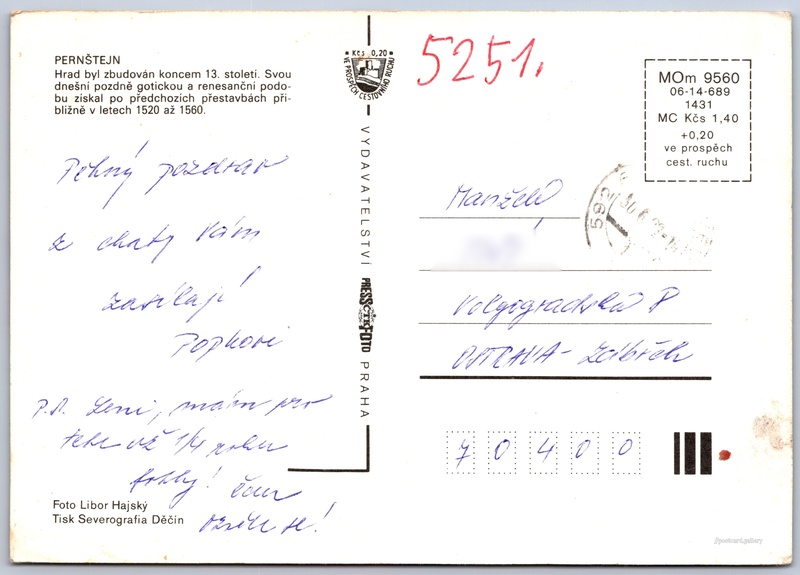 PERNŠTEJN
Hrad byl zbudován koncem 13. století. Svou
dnešní pozdně gotickou a renesanční podo-
bu získal po předchozích přestavbách při-
bližně v letech 1520 až 1560.
Kčs 0,20
VE PROSPĚCH CESTOVNÍHO RUCHU
5251.
MOm 9560
06-14-689
1431
MC Kčs 1,40
+0,20
ve prospěch
cest. ruchu
592
Pěkný pozdrav
z chaty Vám
zasílají
Popkovi
P.S. Leni, mám pro
tebe už 1/4 roku
fotky!
Ozvěte se!
VYDAVATELSTVÍ
PRESSFOTO
ČTK
PRAHA
Manželé
Volgogradská 8
OSTRAVA - Zábřeh
70400
Foto Libor Hajský
Tisk Severografia Děčín
//postcard.gallery